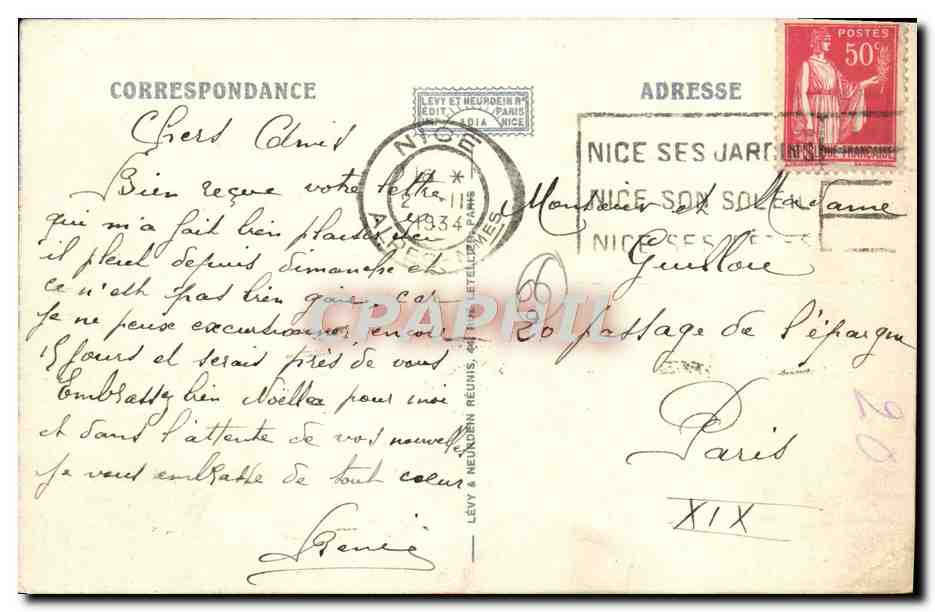 CORRESPONDANCE
LÉVY ET NEURDEIN Rs
EDIT. PARIS
IMP. ADIA NICE
ADRESSE
POSTES
50c
RÉPUBLIQUE FRANÇAISE
NICE
2 -II
1934
ALPES MMES
NICE SES JARDINS
NICE SON SOLEIL
NICE SES FETES
Chers Amis
Bien reçue votre lettre
qui m'a fait bien plaisir
il pleut depuis dimanche et
ce n'est pas bien gaie, car
je ne peux excursionner, encore
15 jours et serais près de vous
Embrassez bien Noëlla pour moi
et dans l'attente de vos nouvelles
je vous embrasse de tout cœur
LÉVY & NEURDEIN RÉUNIS, 44, RUE LETELLIER, PARIS
Monsieur et Madame
20 passage de l'épargne
Paris
XIX
20
CPARAMA